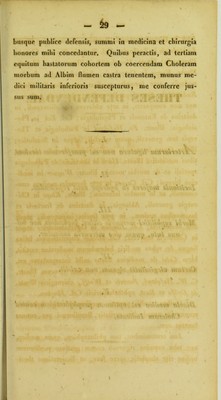 — 29 —
busque publice defensis, summi in medicina et chirurgia
honores mihi concedantur. Quibus peractis, ad tertiam
equitum hastatorum cohortem ob coercendam Choleram
morbum ad Albim flumen castra tenentem, munus me-
dici militaris inferioris suscepturus, me conferre jus-
sus sum.